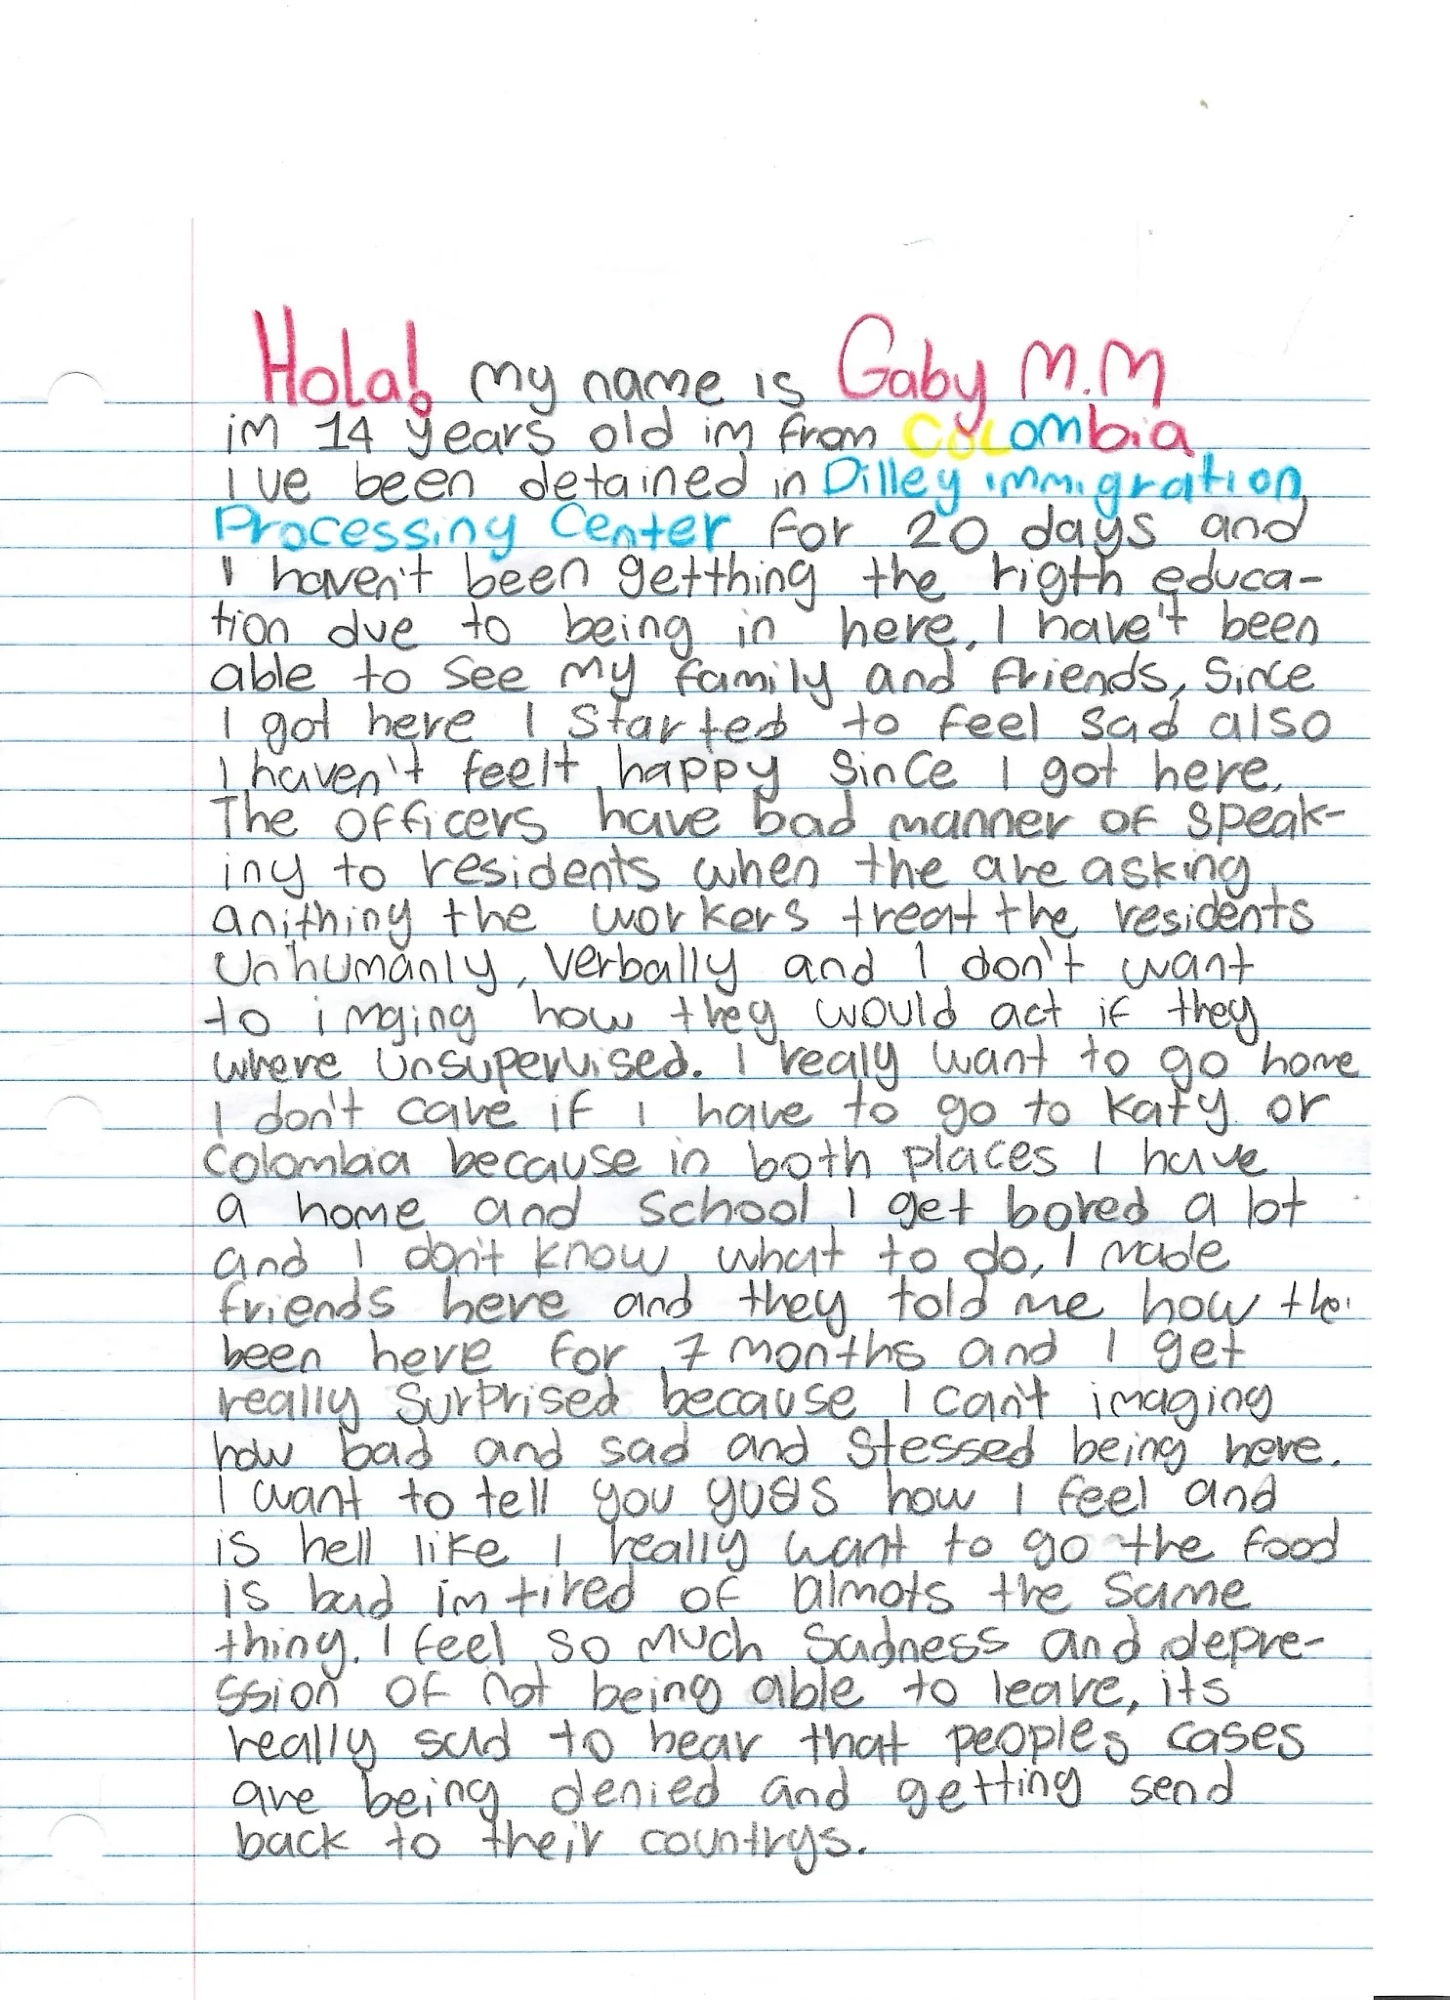 Hola! my name is Gaby M.M
im 14 years old im from COLombia
I've been detained in Dilley immigration
Processing Center for 20 days and
I haven't been getthing the rigth educa-
tion due to being in here. I have't been
able to see my family and friends, Since
I got here I started to feel sad also
I haven't feelt happy since I got here.
The officers have bad manner of speak-
iny to residents when the are asking
anithing the workers treat the residents
unhumanly, verbally and I don't want
to imging how they would act if they
where unsupervised. I realy want to go home
I don't care if I have to go to Katy or
Colombia because in both places I have
a home and school, I get bored a lot
and I don't know what to do, I made
friends here and they told me how the
been here for 7 months and I get
really surprised because I can't imaging
how bad and sad and stessed being here.
I want to tell you how I feel and
is hell like I really want to go the food
is bad im tired of almots the same
thing. I feel so much sadness and depre-
ssion of not being able to leave, its
really sad to hear that peoples cases
are being denied and getting send
back to their countrys.